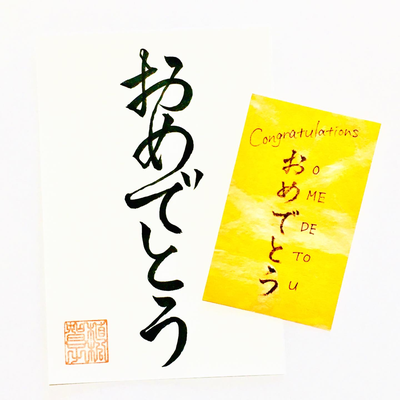 おめでとう
Congratulations
おめでとう
O
ME
DE
TO
U